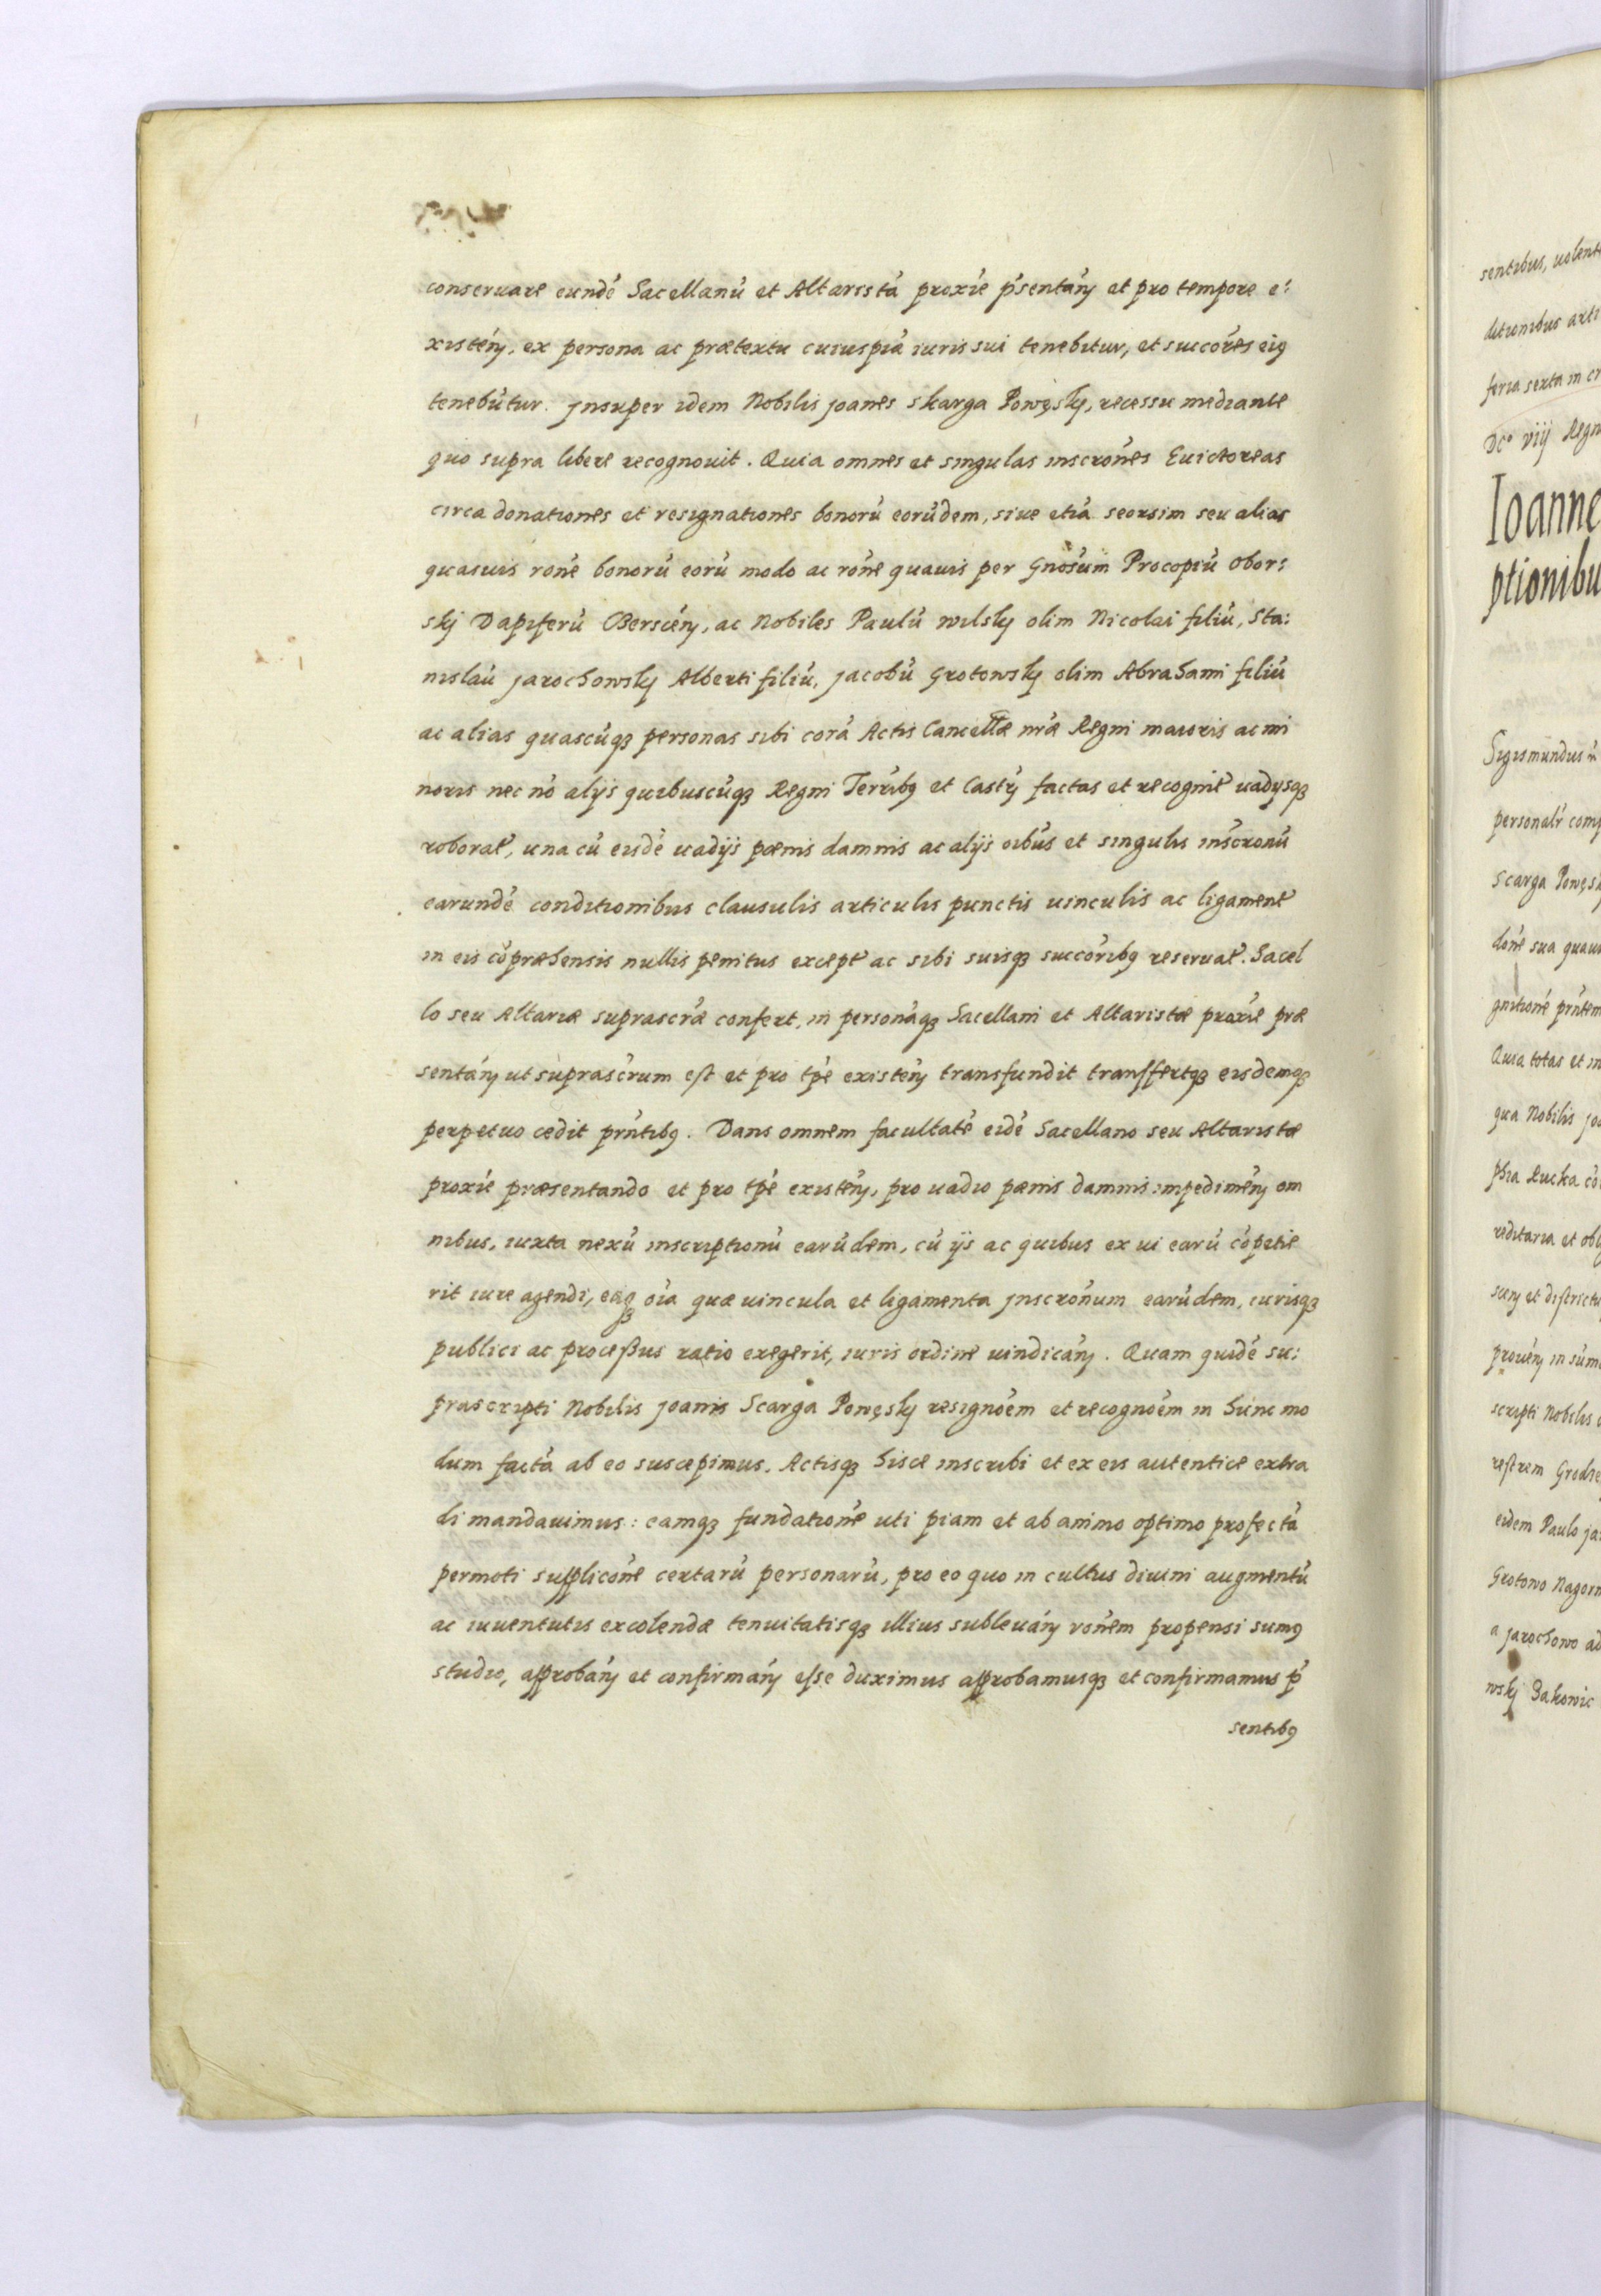 conseruare eundé Sacellanú et Altaristá proxíe p̃sentań et pro tempore e:
xistéń, ex persona ac prætextu cuiuspiá iuris sui tenebitur, et succőres eiꝰ
tenebútur. Jnsuper idem Nobilis Joanes Skarga Powęsky, recessu mediante
quo supra libere recognouit. Quia omnes et singulas inscrőnes Euictoreas
circa donationes et resignationes bonorú eorúdem, siue etiá seorsim seu alias
quasuis rőne bonorú eorú modo ac rőne quauis per Gnősum Procopiú Obor:
skj Dapiferú Bersceń, ac Nobiles Paulú wilsky olim Nicolai filiú, Sta:
nislaú Jarochowsky Alberti filiú, Jacobú Grotowsky olim Abrahami filiú
ac alias quascúqꝫ personas sibi corá Actis Cancellæ nr̃æ Regni maioris ac mi
noris nec nó alijs quibuscúqꝫ Regni Terribꝰ et Castrj factas et recognit̃ uadijsqꝫ
roborat̃, una cú eisdé uadijs pœnis damnis ac alijs oíbus et singulis inscronú
earundé conditionibus clausulis articulis punctis uinculis ac ligament̃
in eis cópræhensis nullis penitus except̃ ac sibi suisqꝫ succőribꝰ reseruat̃. Sacel
lo seu Altariæ suprascr̃æ confert, in personáqꝫ Sacellani et Altaristæ proxíe præ
sentáń ut suprascr̃um est et pro tpé existeń transfundit transfertqꝫ eisdemqꝫ
perpetuo cedit prńtibꝰ. Dans omnem facultaté eidé Sacellano seu Altaristæ
proxíe præsentando et pro tpé existeń, pro uadio pœnis damnis impedimeń om
nibus, iuxta nexú inscriptionú earúdem, cú ijs ac quibus ex ui earú cópetie
rit iure agendi, eaqꝫ oía quæ uincula et ligamenta Jnscrőnum earúdem, iurisqꝫ
publici ac processus ratio exegerit, iuris ordine uindicáń. Quam quidé su:
prascripti Nobilis Joanis Scarga Powęsky resignőem et recognőem in hunc mo
dum factá ab eo suscepimus. Actisqꝫ hisce inscribi et ex eis autentice extra
di mandauimus: eamqꝫ fundationé uti piam et ab animo optimo profectá
permoti supplicőne certarú personarú, pro eo quo in cultus diuini augmentú
ac iuuentutis excolendæ tenuitatisqꝫ illius subleuáń rőnem propensi sumꝰ
studio, approbáń et confirmáń esse duximus approbamusqꝫ et confirmamus p̃
sentibꝰ
sentibus, uolent
ditionibus arti
feria sexta in cr
Dcº viij Regn
Ioanne
ptionibu
Sigismundus
personalr̃ comp
Scarga Powęs
done sua quau
gnitioné prńtem
Quia totas et in
qua Nobilis Jo
phia Rucka có
reditaria et obl
scéń et districtu
prouéń in súm
scripti Nobilis
restrem Grodze
eidem Paulo Ja
Grotowo Nagorn
a Jarochowo ad
wskj Bakowic